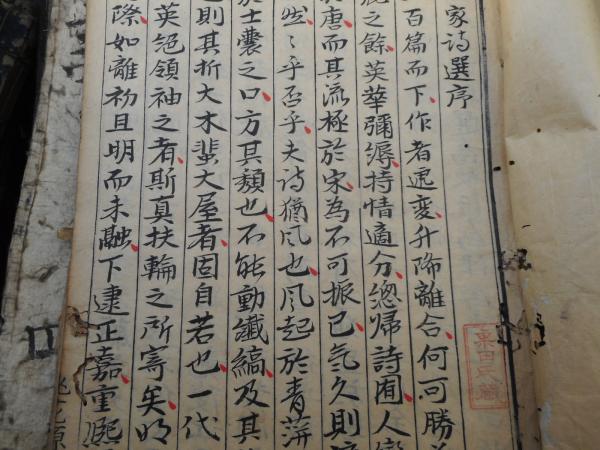 家詩選序
百篇而下作者遞變升降離合何可勝
之餘英華彌縟持情適分總歸詩囿人
唐而其流極於宋為不可振已氣久則
然〻乎否乎夫詩猶風也風起於青萍
於士囊之口方其頹也不能動纖縞及其
則其折大木蜚大屋者固自若也一代
英絕領袖之者斯真扶輪之所寄矣明
際如離初且明而未融下逮正嘉重熙
栗田氏藏